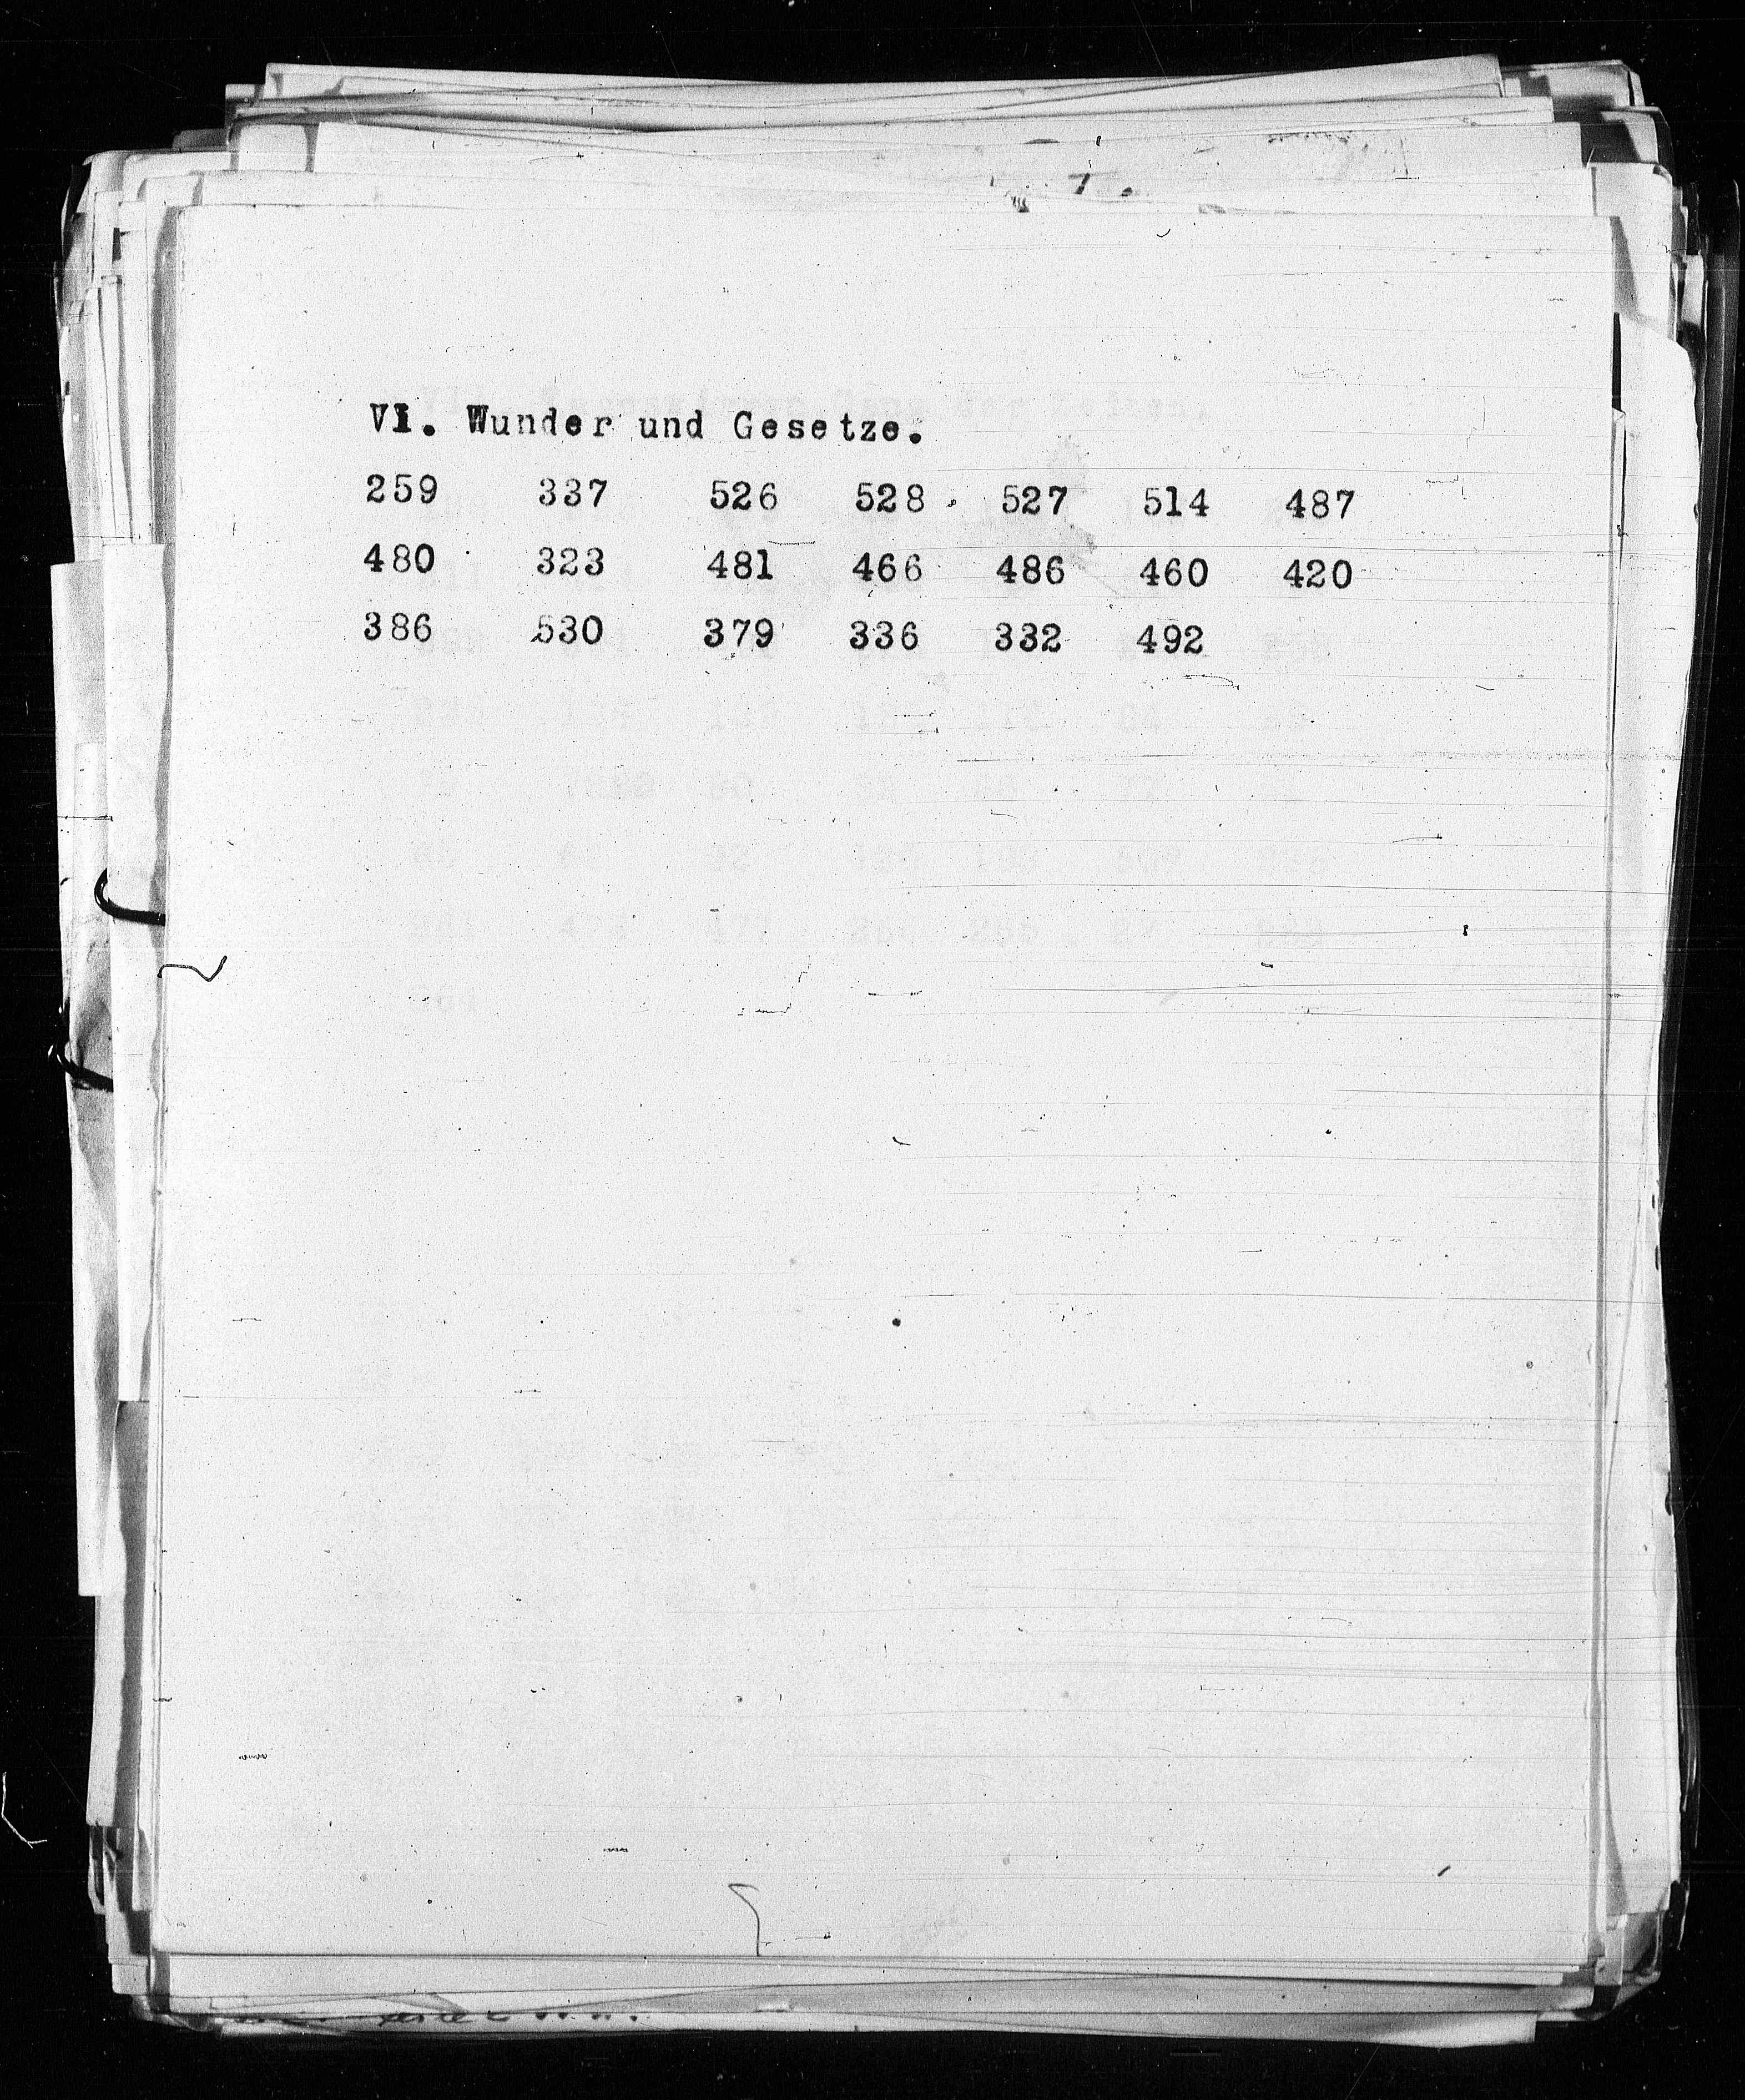 VI. Wunder und Gesetze.
259 337 526 528 527 514 487
480 323 481 466 486 460 420
386 530 379 336 332 492